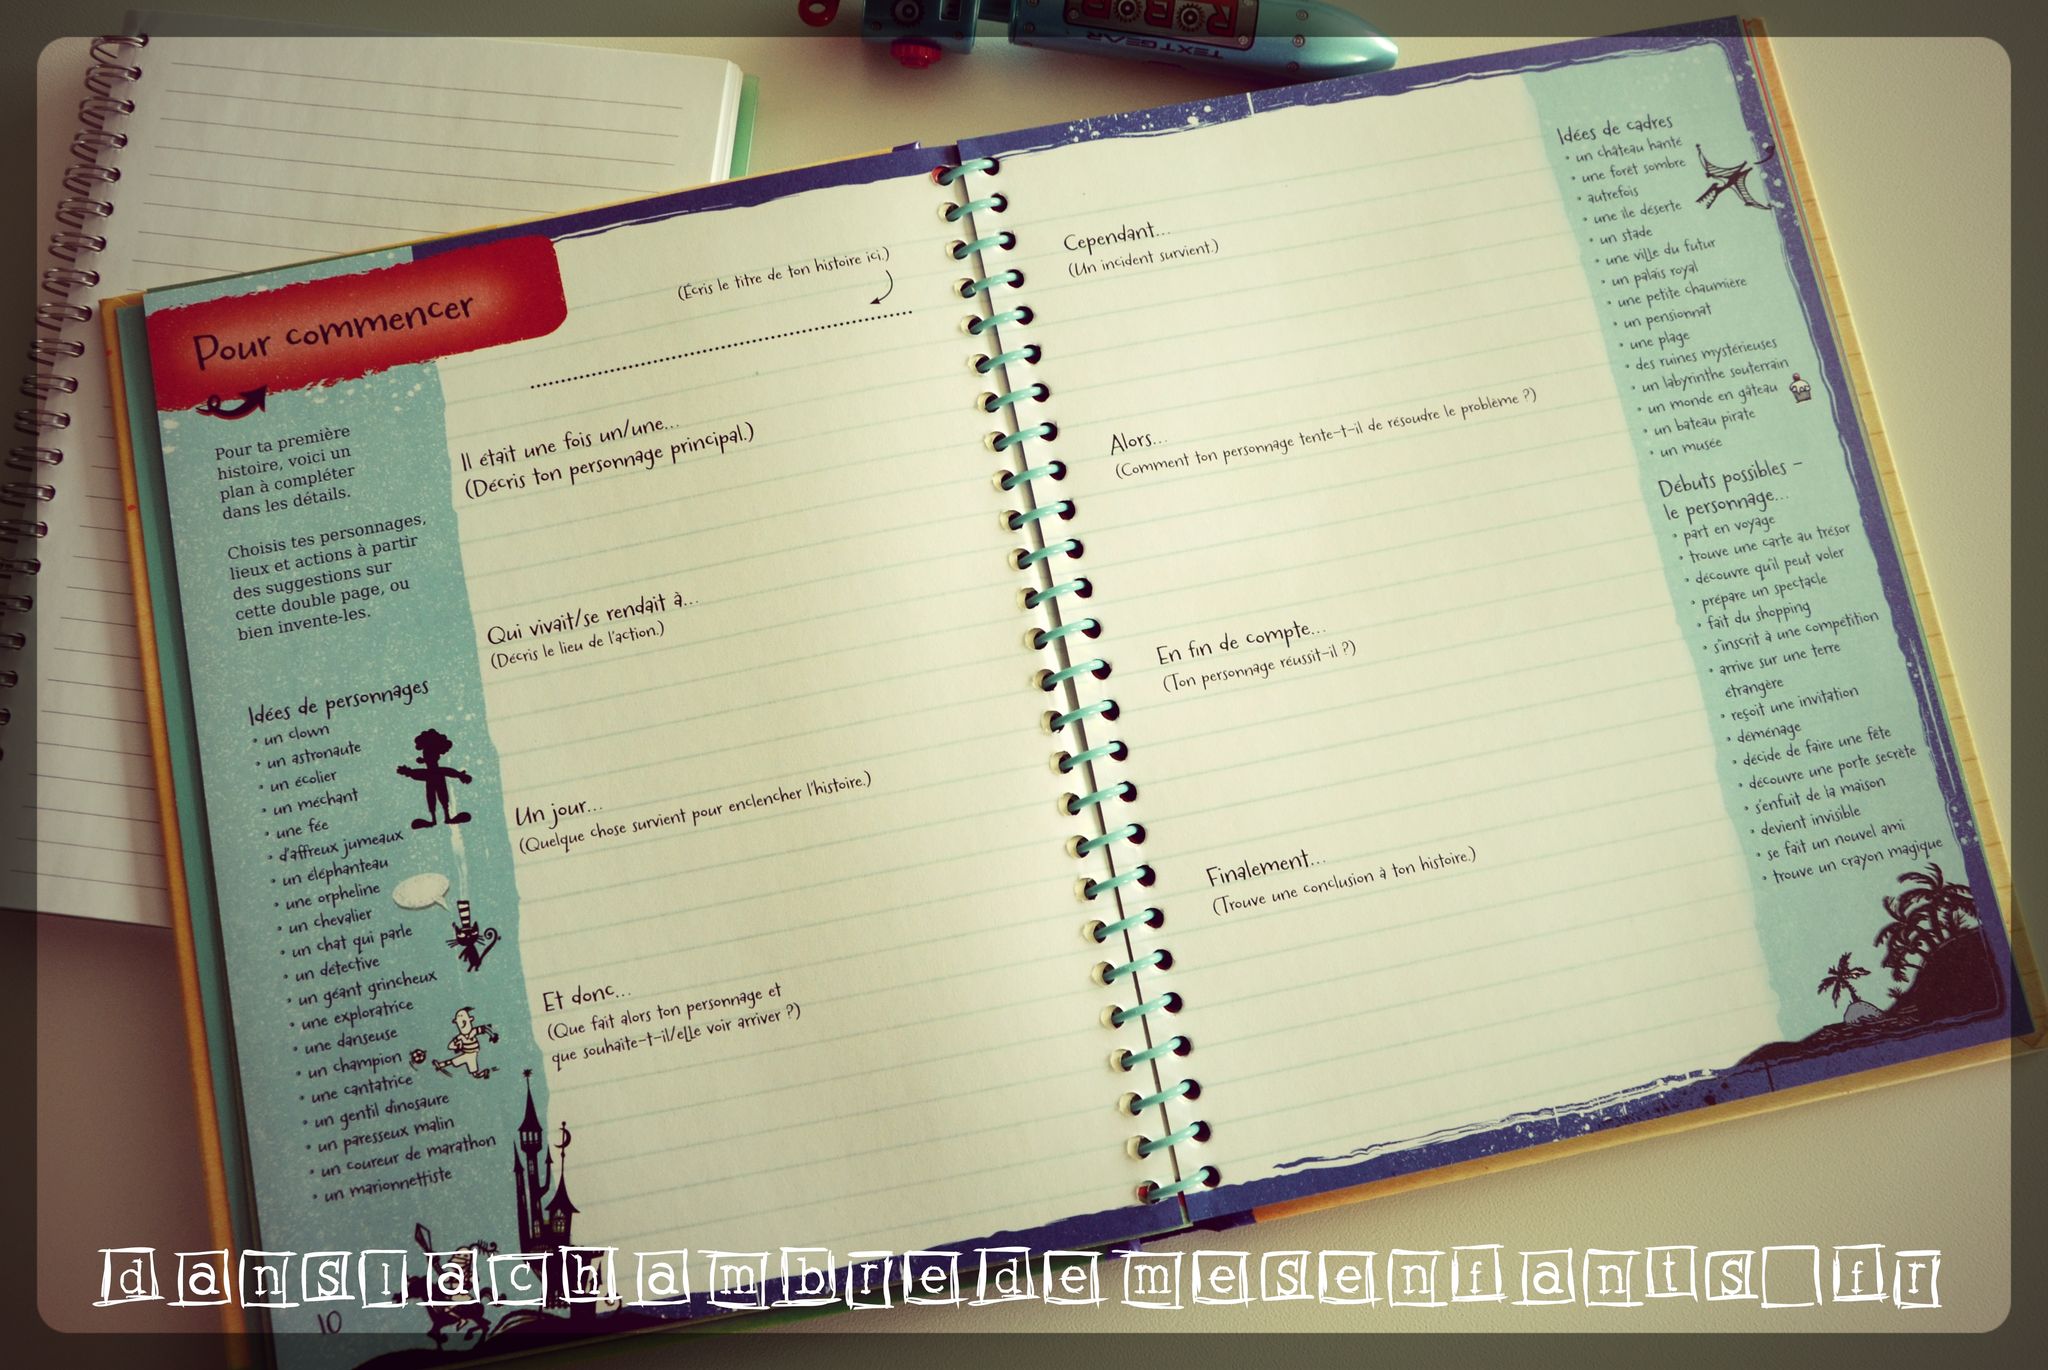 ROBOT
TEXTGEAR
Pour commencer
Pour ta première
histoire, voici un
plan à compléter
dans les détails.
Choisis tes personnages,
lieux et actions à partir
des suggestions sur
cette double page, ou
bien invente-les.
Idées de personnages
• un clown
• un astronaute
• un écolier
• un méchant
• une fée
• d'affreux jumeaux
• un éléphanteau
• une orpheline
• un chevalier
• un chat qui parle
• un détective
• un géant grincheux
• une exploratrice
• une danseuse
• un champion
• une cantatrice
• un gentil dinosaure
• un paresseux malin
• un coureur de marathon
• un marionnettiste
10
(Écris le titre de ton histoire ici.)
Il était une fois un/une...
(Décris ton personnage principal.)
Qui vivait/se rendait à...
(Décris le lieu de l'action.)
Un jour...
(Quelque chose survient pour enclencher l'histoire.)
Et donc...
(Que fait alors ton personnage et
que souhaite-t-il/elle voir arriver ?)
Cependant...
(Un incident survient.)
Alors...
(Comment ton personnage tente-t-il de résoudre le problème ?)
En fin de compte...
(Ton personnage réussit-il ?)
Finalement...
(Trouve une conclusion à ton histoire.)
Idées de cadres
• un château hanté
• une forêt sombre
• autrefois
• une île déserte
• un stade
• une ville du futur
• un palais royal
• une petite chaumière
• un pensionnat
• une plage
• des ruines mystérieuses
• un labyrinthe souterrain
• un monde en gâteau
• un bateau pirate
• un musée
Débuts possibles –
le personnage...
• part en voyage
• trouve une carte au trésor
• découvre qu'il peut voler
• prépare un spectacle
• fait du shopping
• s'inscrit à une compétition
• arrive sur une terre
étrangère
• reçoit une invitation
• déménage
• décide de faire une fête
• découvre une porte secrète
• s'enfuit de la maison
• devient invisible
• se fait un nouvel ami
• trouve un crayon magique
danslachambredemesenfants fr